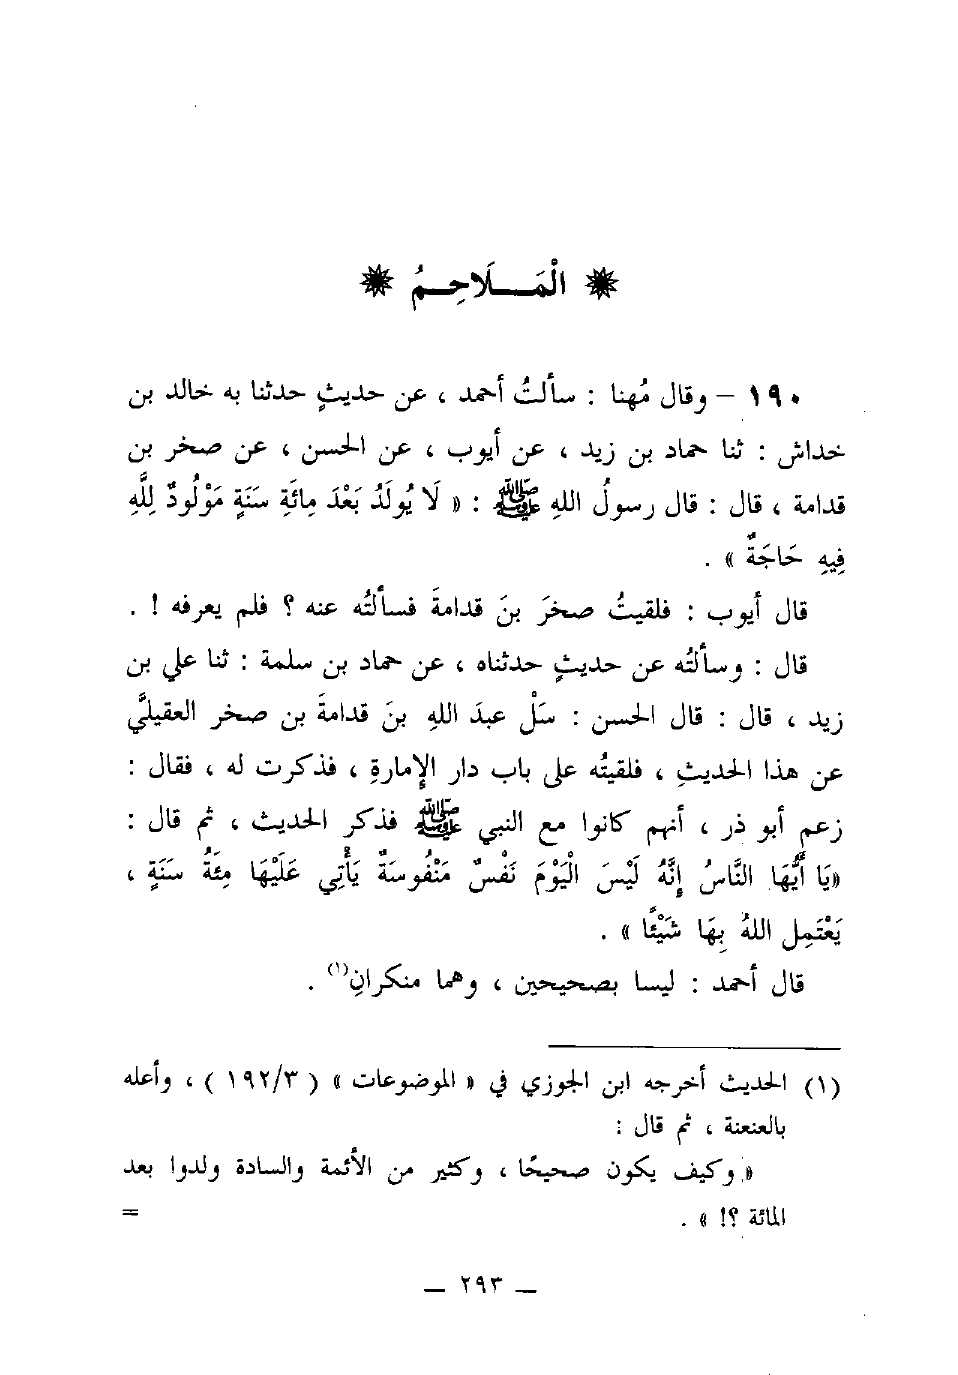 الْمَـــلَاحِـــمُ
١٩٠ – وقال مُهنا : سألتُ أحمد ، عن حديثٍ حدثنا به خالد بن
خداش : ثنا حماد بن زيد ، عن أيوب ، عن الحسن ، عن صخر بن
قدامة ، قال : قال رسولُ الله ﷺ : « لَا يُولَدُ بَعْدَ مِائَةِ سَنَةٍ مَوْلُودٌ لِلَّهِ
فِيهِ حَاجَةٌ » .
قال أيوب : فلقيتُ صخرَ بنَ قدامةَ فسألتُه عنه ؟ فلم يعرفه ! .
قال : وسألتُه عن حديثٍ حدثناه ، عن حماد بن سلمة : ثنا علي بن
زيد ، قال : قال الحسن : سَلْ عبدَ اللهِ بنَ قدامةَ بن صخر العقيليَّ
عن هذا الحديثِ ، فلقيتُه على باب دار الإمارةِ ، فذكرت له ، فقال :
زعم أبو ذر ، أنهم كانوا مع النبي ﷺ فذكر الحديث ، ثم قال :
«يَا أَيُّهَا النَّاسُ إِنَّهُ لَيْسَ الْيَوْمَ نَفْسٌ مَنْفُوسَةٌ يَأْتِي عَلَيْهَا مِئَةُ سَنَةٍ ،
يَعْتَمِل اللهُ بِهَا شَيْئًا » .
قال أحمد : ليسا بصحيحين ، وهما منكرانِ(١) .
(١) الحديث أخرجه ابن الجوزي في « الموضوعات » ( ١٩٢/٣ ) ، وأعله
بالعنعنة ، ثم قال :
« وكيف يكون صحيحًا ، وكثير من الأئمة والسادة ولدوا بعد
المائة ؟! » . =
– ٢٩٣ –